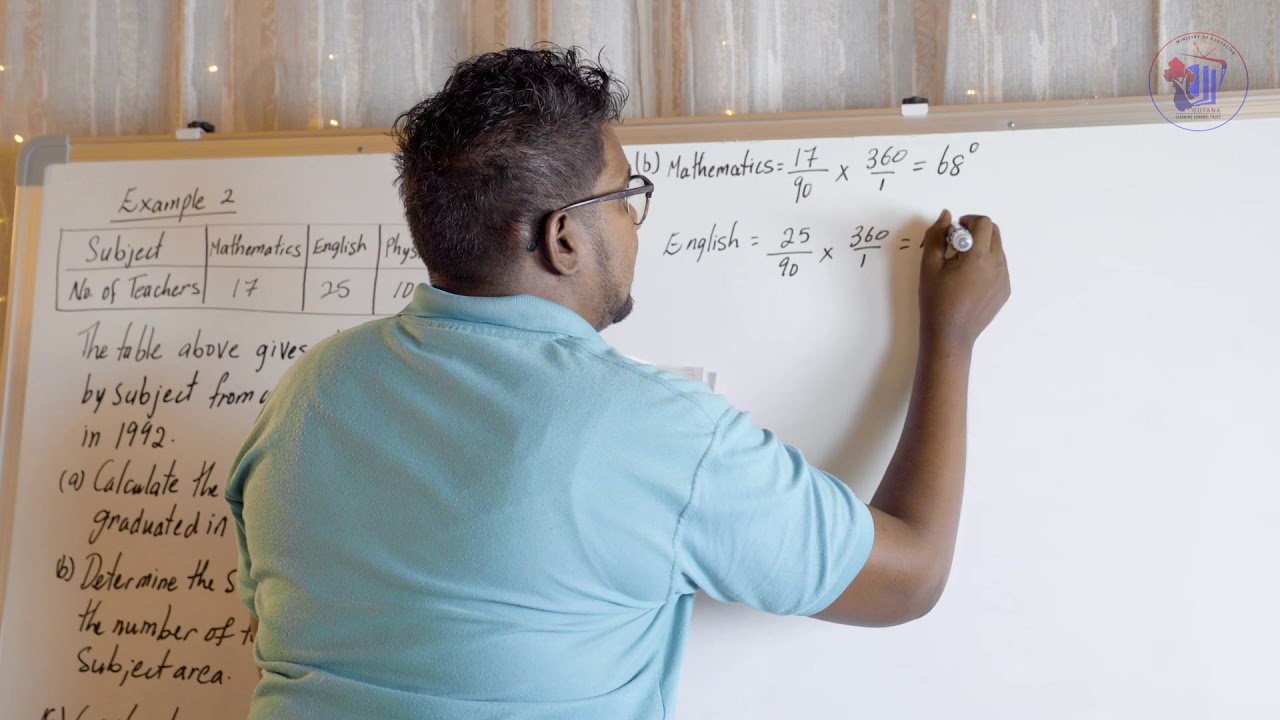 Example 2
Subject Mathematics English
No. of Teachers 17 25 10
The table above gives
by subject from
in 1992.
(a) Calculate the
graduated in
(b) Determine the
the number of
Subject area.
(b) Mathematics = 17/90 x 360/1 = 68°
English = 25/90 x 360/1 =
MINISTRY OF EDUCATION
GUYANA
LEARNING CHANNEL TRUST